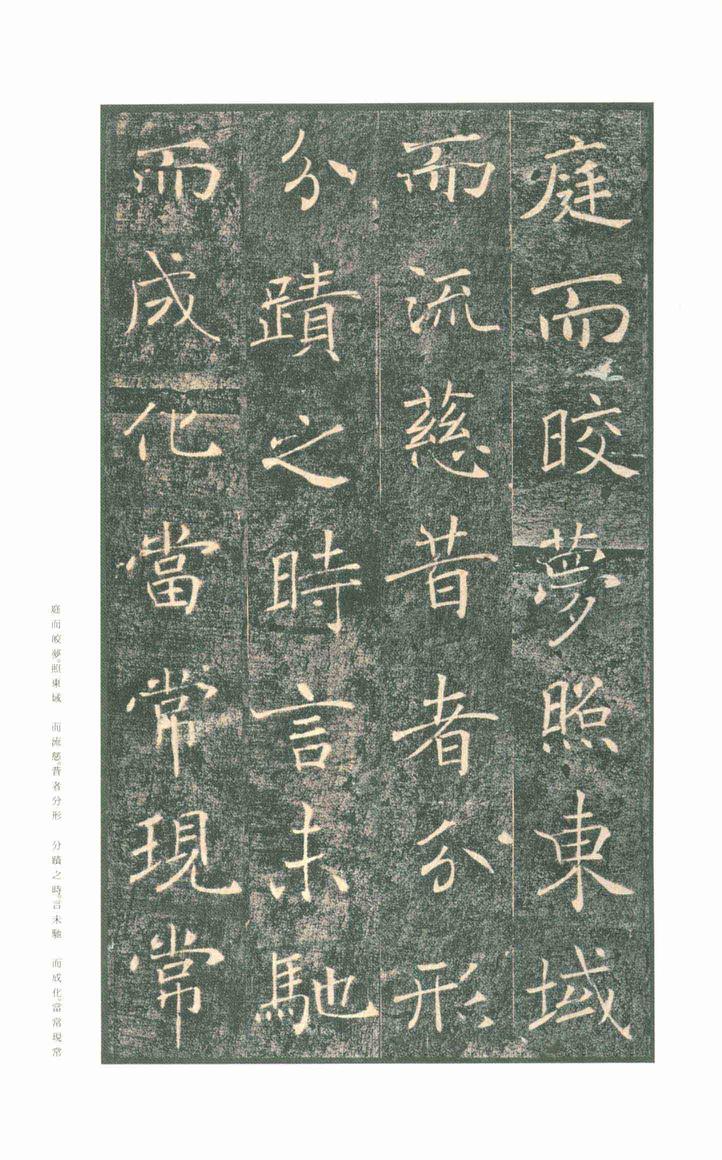 庭而皎夢照東域
而流慈昔者分形
分蹟之時言未馳
而成化當常現常
庭而皎夢。照東域　而流慈。昔者分形　分蹟之時。言未馳　而成化。當常現常